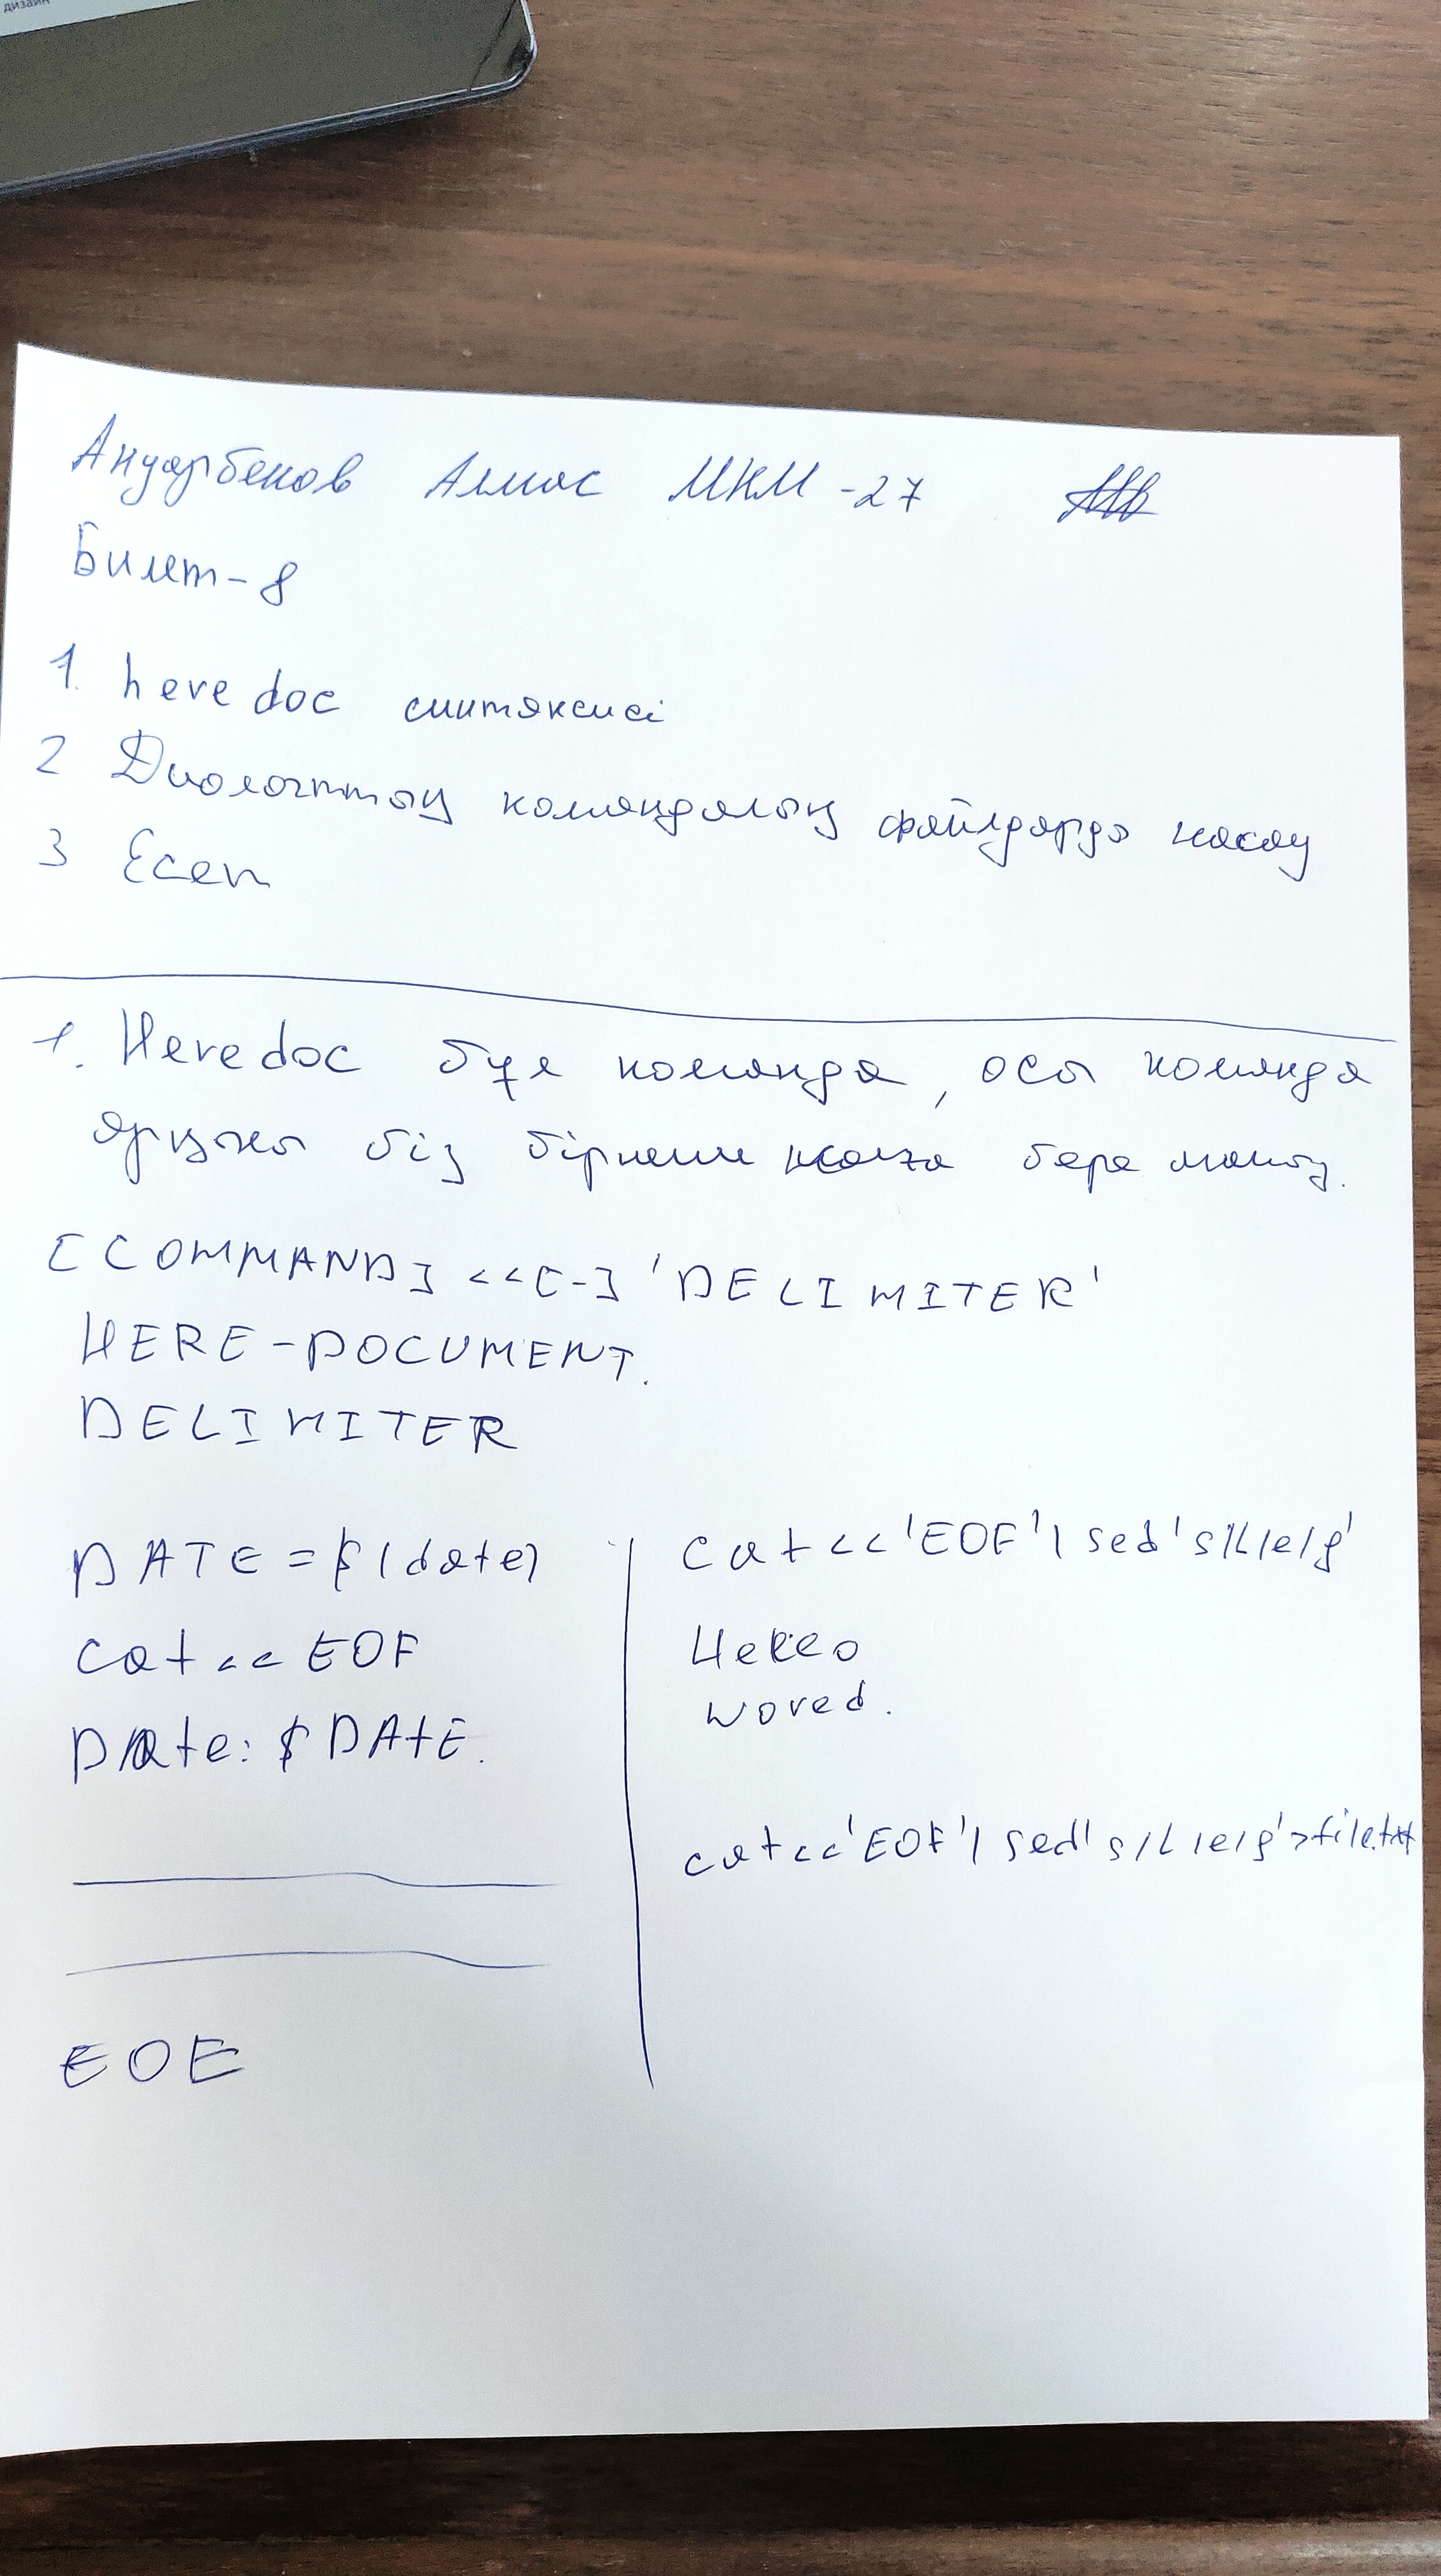 дизайн
Ануарбеков Алмас МКМ-27
Билет-8
1. heredoc синтаксисі
2 Диологттың командалық файлдарда жасау
3 Есеп
1. Heredoc бұл команда, осы команда
арқылы біз бірнеше жолға бере аламыз.
[COMMAND] <<[-] 'DELIMITER'
HERE-DOCUMENT.
DELIMITER
DATE = $(date)
cat << EOF
Date: $ DATE.
EOE
cat << 'EOF' | sed 's/l/e/g'
Hello
world.
cat << 'EOF' | sed 's/l/e/g' > file.txt